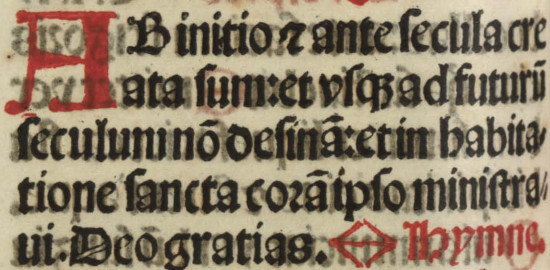 AB initio ⁊ ante secula cre
ata sum: et vsqꝫ ad futurū
seculum nō desinā: et in habita⸗
tione sancta corā ipso ministra⸗
ui. Deo gratias. Hymne.